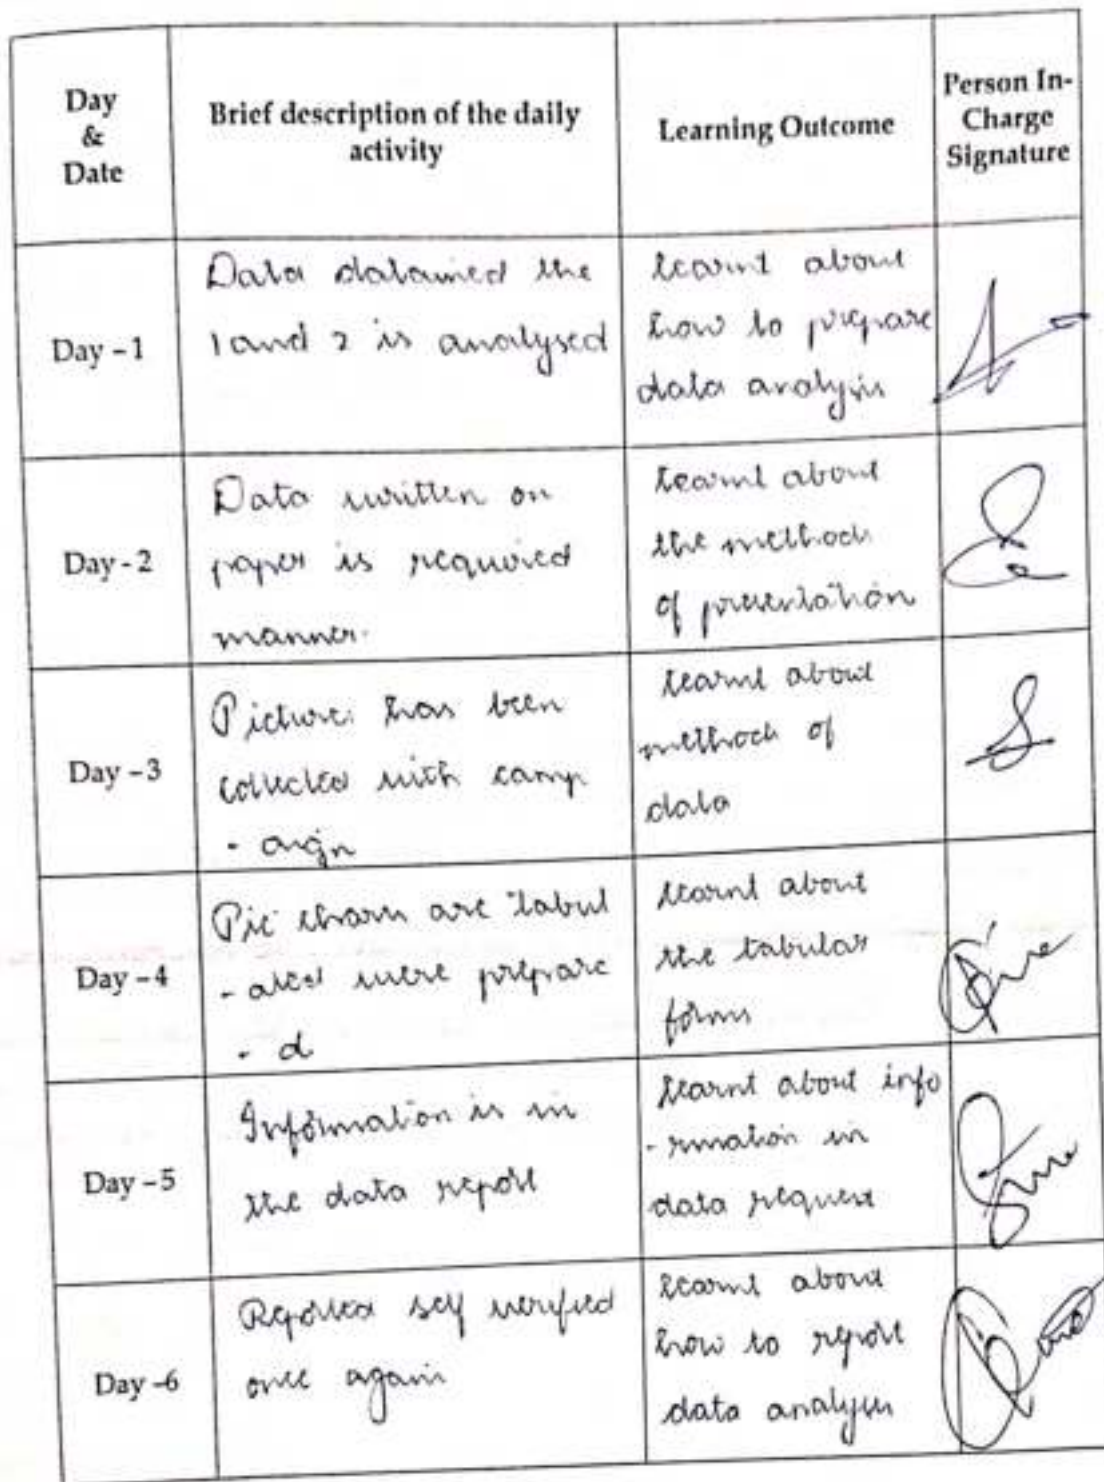 Day
&
Date
Brief description of the daily
activity
Learning Outcome
Person In-
Charge
Signature
Day - 1
Data datained the
1 and 2 is analysed
learnt about
how to prepare
data analysis
Day - 2
Data written on
paper is required
manner.
learnt about
the methods
of presentation
Day - 3
Pictures has been
collected with camp
- aign
learnt about
methods of
data
Day - 4
Pie charts are tabul
- ated were prepare
- d
learnt about
the tabular
forms
Day - 5
Information is in
the data report
learnt about info
- rmation in
data request
Day - 6
Reported self verified
once again
learnt about
how to report
data analysis